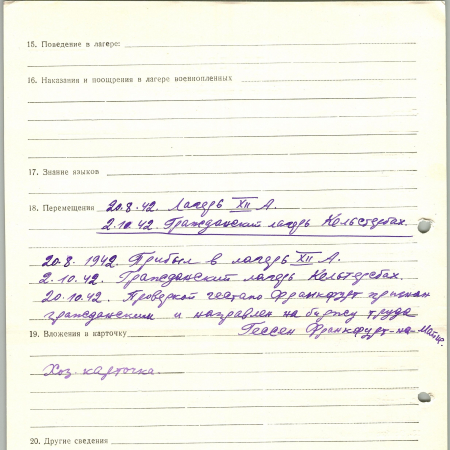 15. Поведение в лагере:
16. Наказания и поощрения в лагере военнопленных
17. Знание языков
18. Перемещения 20.8.42. Лагерь XII А.
2.10.42. Гражданский лагерь Кельстербах.
20.8.1942. Прибыл в лагерь XII А.
2.10.42. Гражданский лагерь Кельтерсбах.
20.10.42. Проверкой гестапо Франкфурт признан
гражданским и направлен на биржу труда
Гессен Франкфурт-на-Майне.
19. Вложения в карточку
Хоз. карточка.
20. Другие сведения